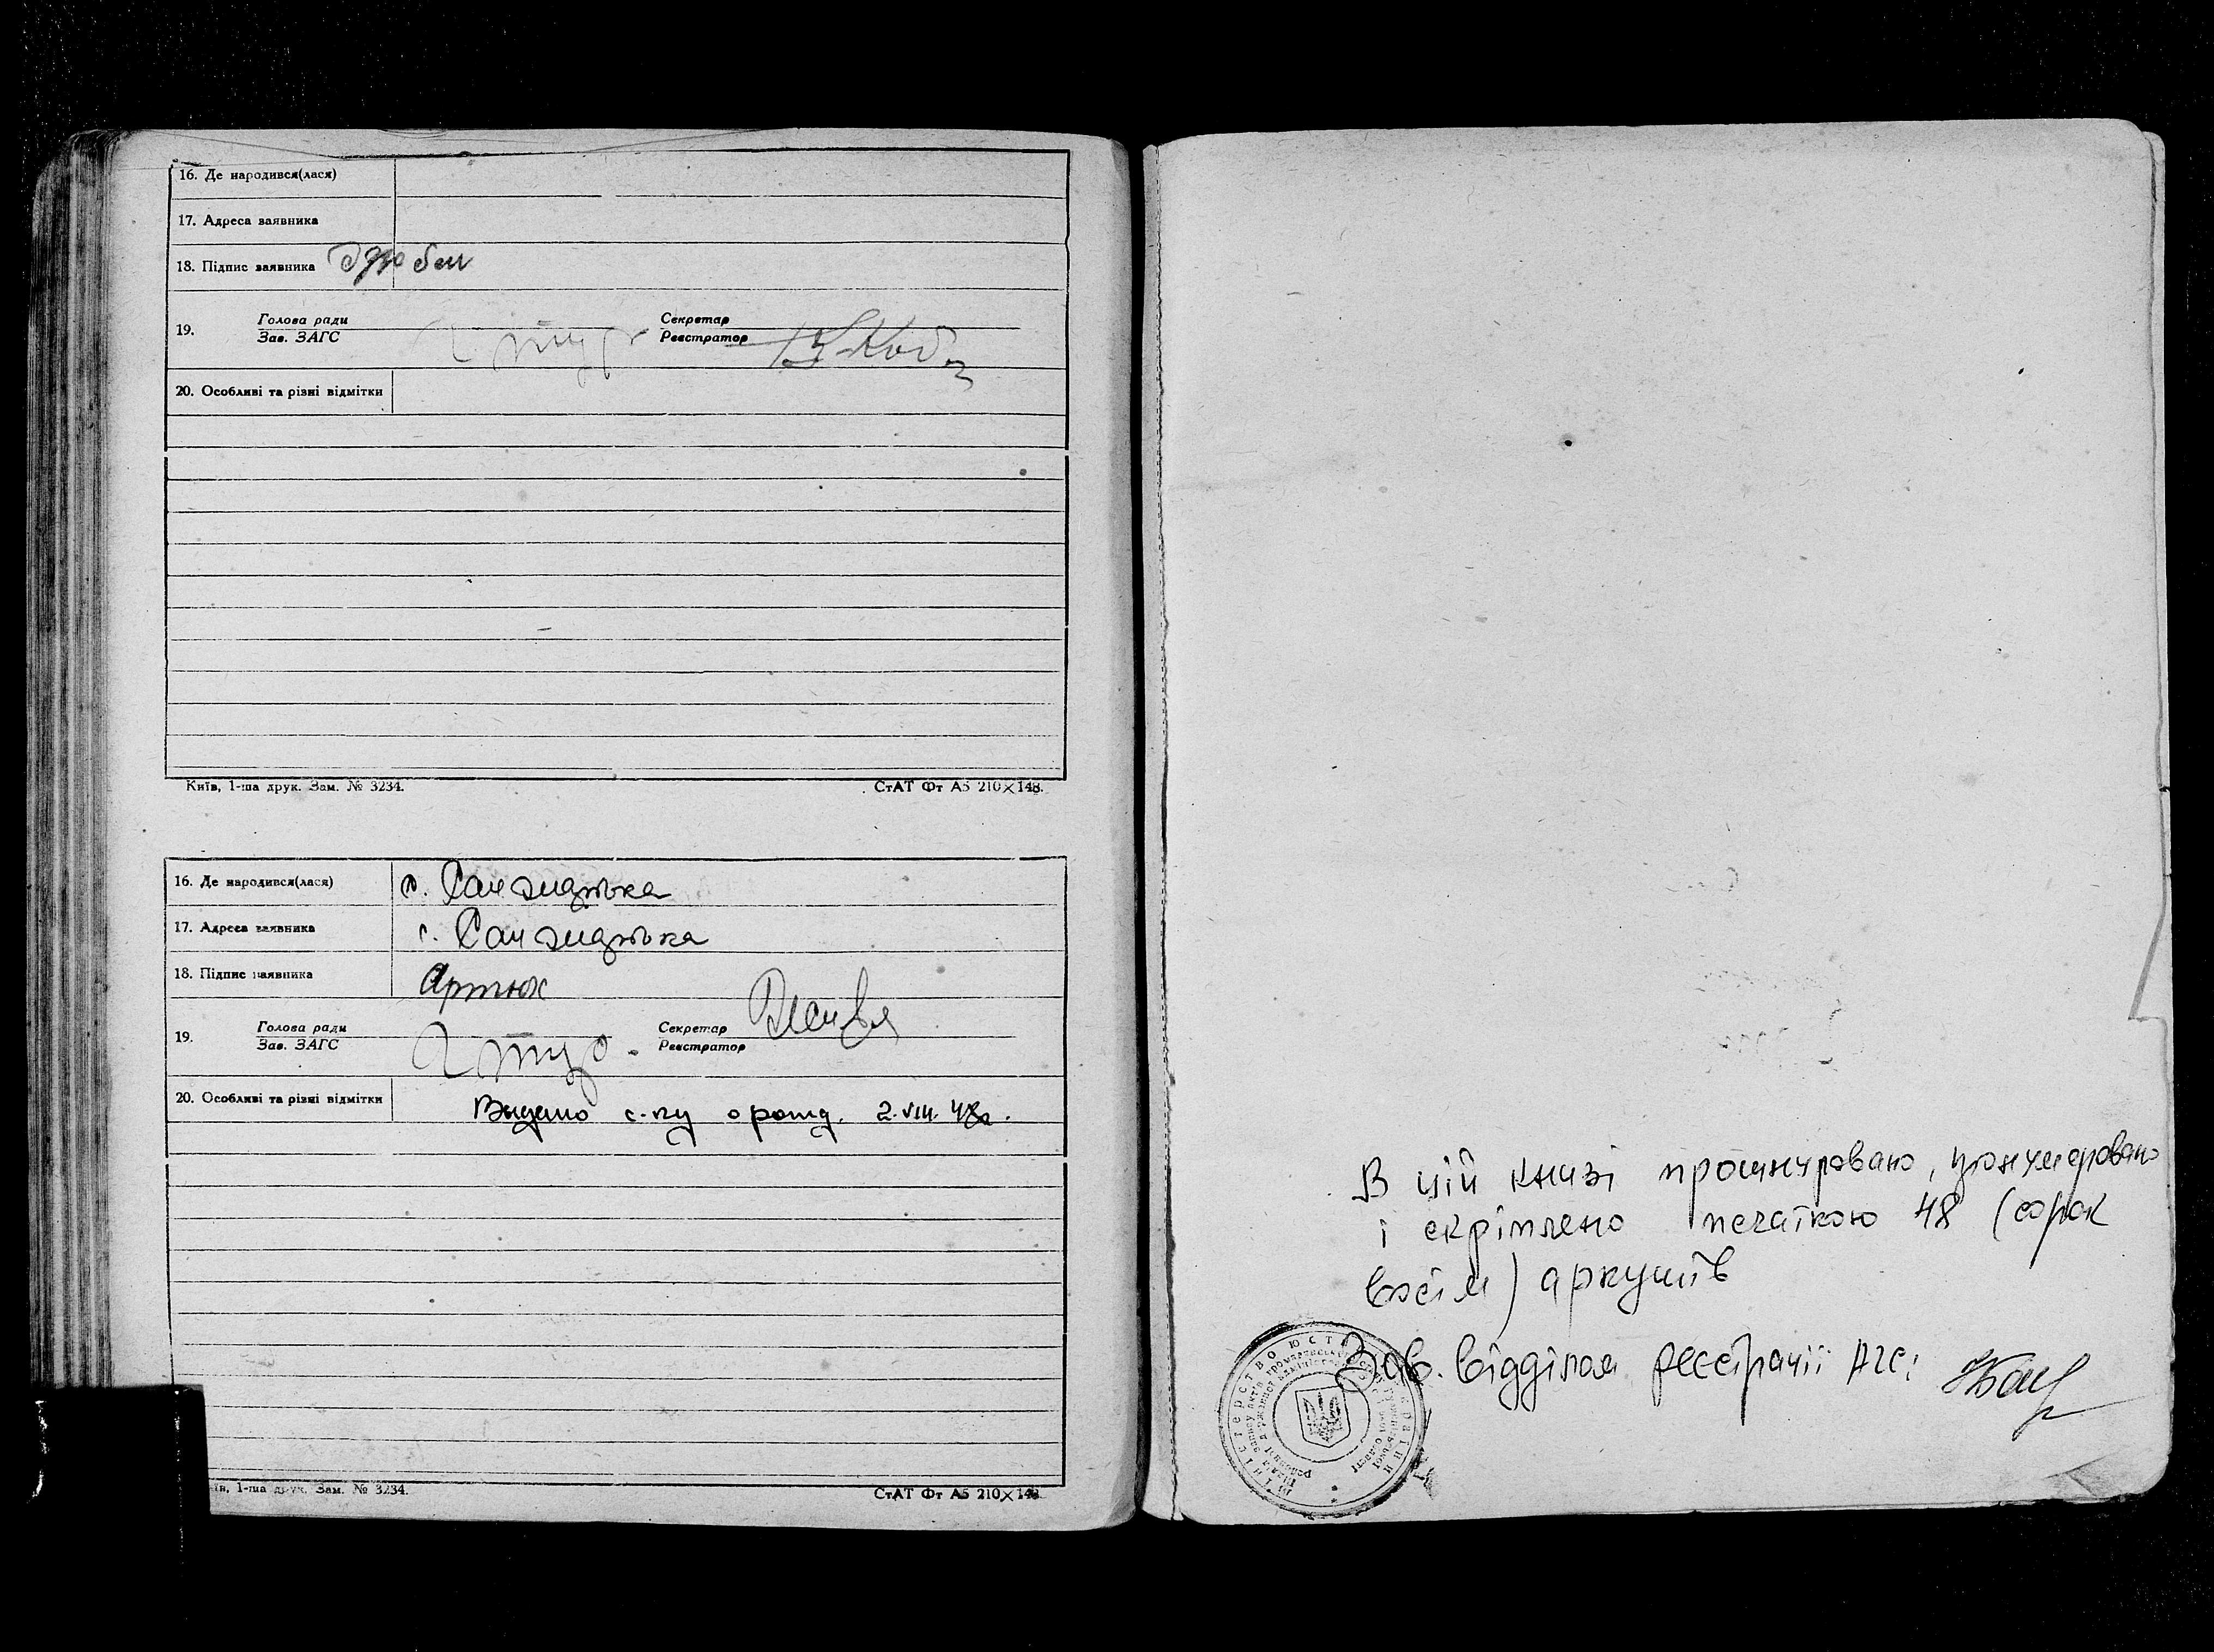 16. Де народився(лася)
17. Адреса заявника
18. Підпис заявника
19. Голова ради Секретар
Зав. ЗАГС Реєстратор
20. Особливі та різні відмітки
Київ, 1-ша друк. Зам. № 3234. СтАТ Фт А5 210×148.
16. Де народився(лася) с. Санжидівка
17. Адреса заявника с. Санжидівка
18. Підпис заявника Артюх
19. Голова ради Секретар
Зав. ЗАГС Реєстратор
20. Особливі та різні відмітки Видано с-ку о рожд. 2.VIII.48г.
їв, 1-ша друк. Зам. № 3234. СтАТ Фт А5 210×148.
В цій книзі прошнуровано, пронумеровано
і скріплено печаткою 48 (сорок
вісім) аркушів
Зав. відділом реєстрації АГС: